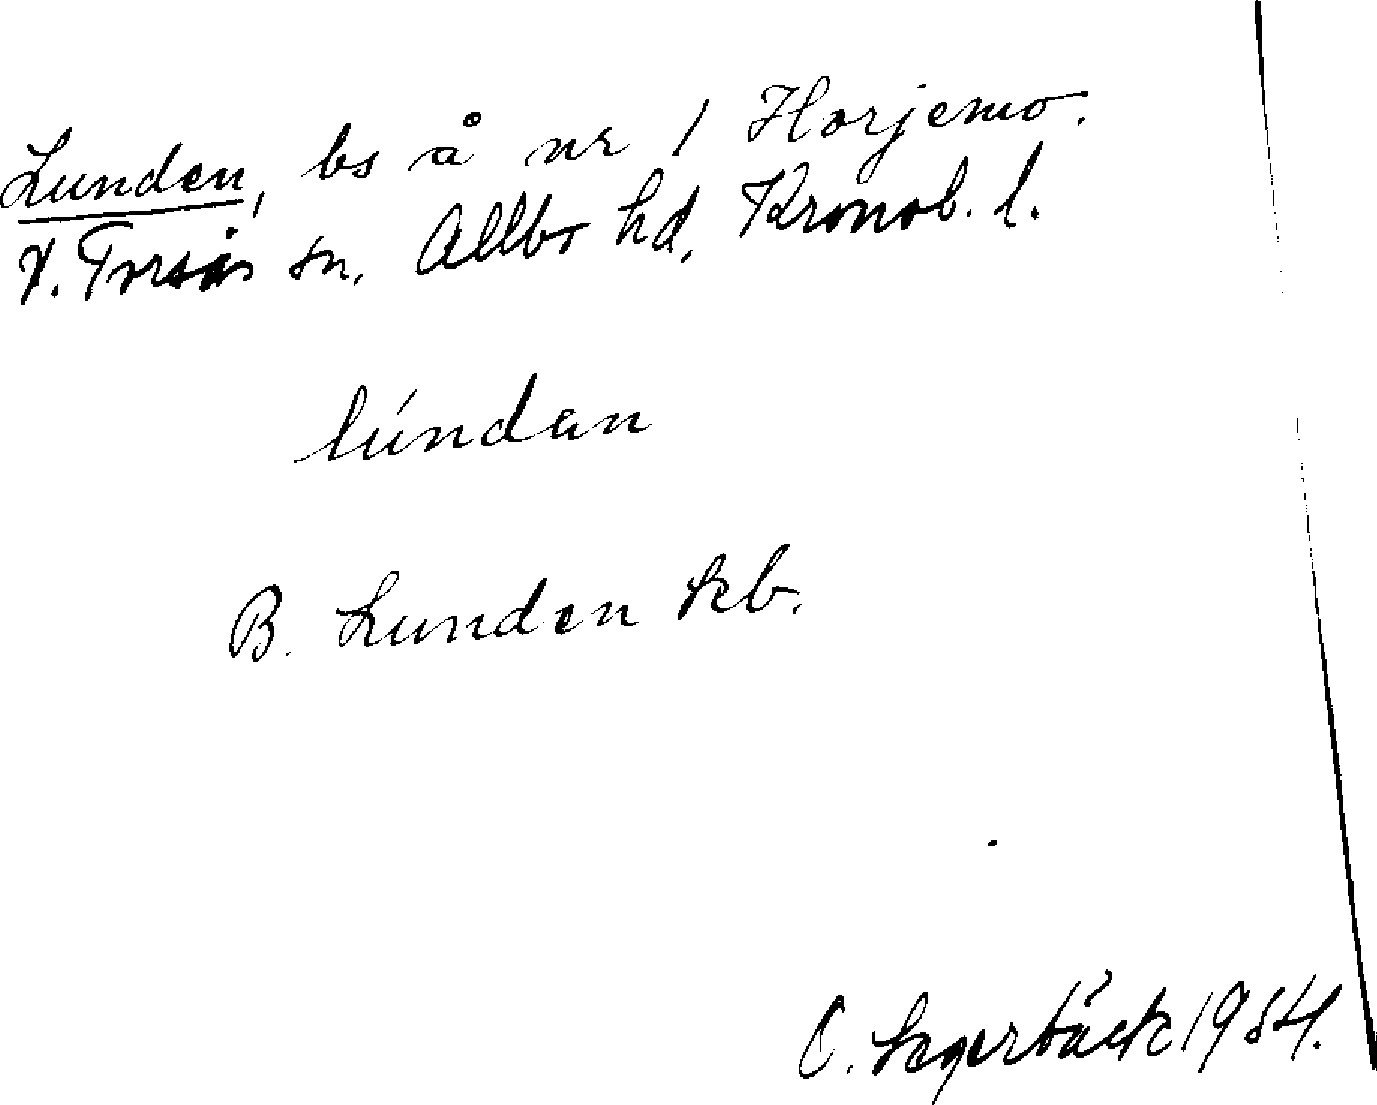 Lunden, bs å nr 1 Horjemo.
V. Torsås sn, Allbo hd, Kronob. l.
lúndan
B. Lunden kb.
C. Lagerbäck 1954.